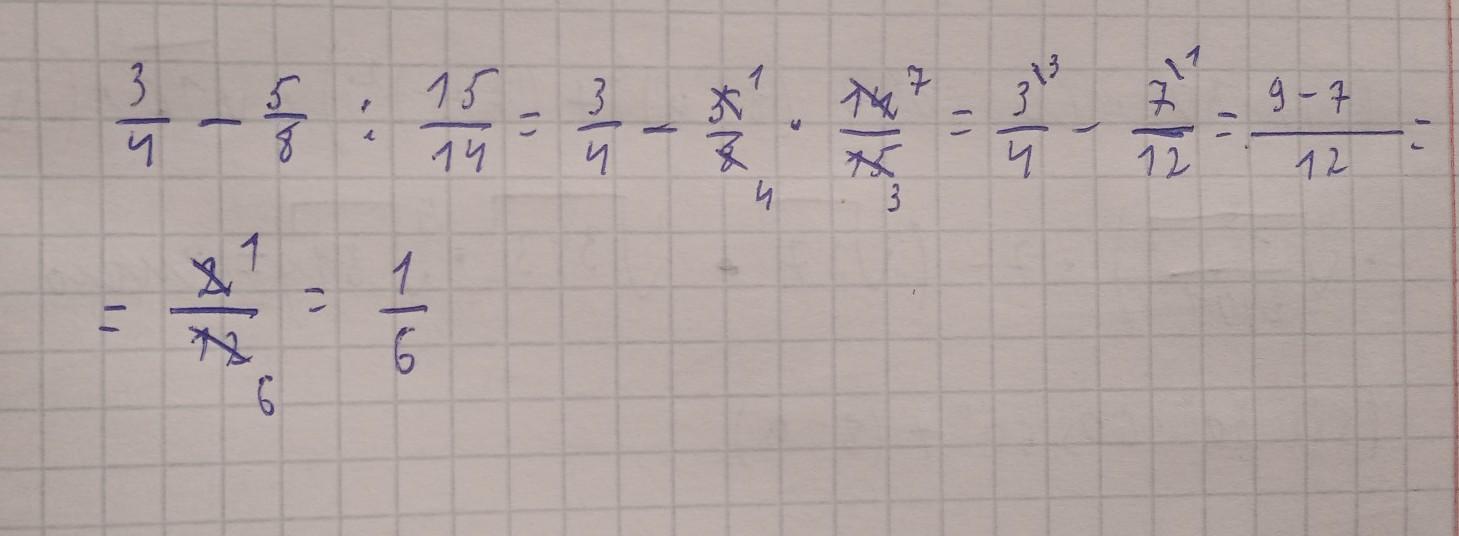 3/4 − 5/8 : 15/14 = 3/4 − 5¹/8₄ · 14⁷/15₃ = 3\³/4 − 7\¹/12 = (9−7)/12 =
= 2¹/12₆ = 1/6